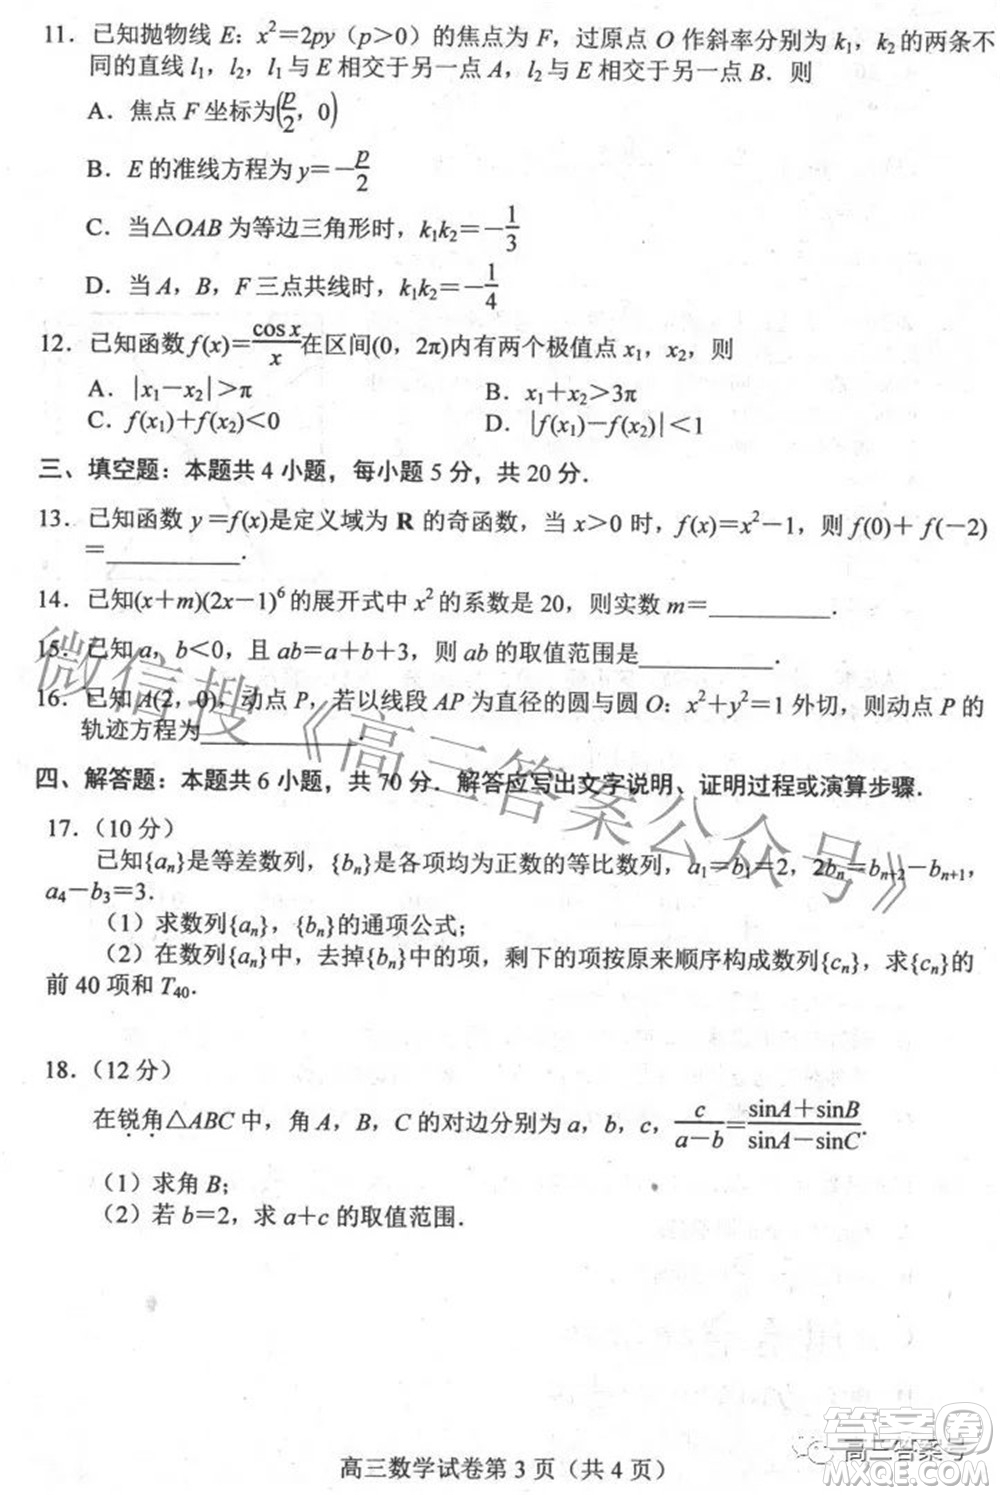 11．已知抛物线 E：x²＝2py（p＞0）的焦点为 F，过原点 O 作斜率分别为 k₁，k₂的两条不
同的直线 l₁，l₂，l₁与 E 相交于另一点 A，l₂与 E 相交于另一点 B．则
A．焦点 F 坐标为(p/2，0)
B．E 的准线方程为 y＝－p/2
C．当△OAB 为等边三角形时，k₁k₂＝－1/3
D．当 A，B，F 三点共线时，k₁k₂＝－1/4
12．已知函数 f(x)＝cos x/x 在区间(0，2π)内有两个极值点 x₁，x₂，则
A．|x₁－x₂|＞π B．x₁＋x₂＞3π
C．f(x₁)＋f(x₂)＜0 D．|f(x₁)－f(x₂)|＜1
三、填空题：本题共 4 小题，每小题 5 分，共 20 分．
13．已知函数 y＝f(x)是定义域为 R 的奇函数，当 x＞0 时，f(x)＝x²－1，则 f(0)＋f(－2)
＝________．
14．已知(x＋m)(2x－1)⁶的展开式中 x²的系数是 20，则实数 m＝________．
15．已知 a，b＜0，且 ab＝a＋b＋3，则 ab 的取值范围是________．
16．已知 A(2，0)，动点 P，若以线段 AP 为直径的圆与圆 O：x²＋y²＝1 外切，则动点 P 的
轨迹方程为________．
四、解答题：本题共 6 小题，共 70 分．解答应写出文字说明、证明过程或演算步骤．
17．（10 分）
已知{aₙ}是等差数列，{bₙ}是各项均为正数的等比数列，a₁＝b₁＝2，2bₙ＝bₙ₊₂－bₙ₊₁，
a₄－b₃＝3．
（1）求数列{aₙ}，{bₙ}的通项公式；
（2）在数列{aₙ}中，去掉{bₙ}的项，剩下的项按原来顺序构成数列{cₙ}，求{cₙ}的
前 40 项和 T₄₀．
18．（12 分）
在锐角△ABC 中，角 A，B，C 的对边分别为 a，b，c，c/(a－b)＝(sinA＋sinB)/(sinA－sinC)．
（1）求角 B；
（2）若 b＝2，求 a＋c 的取值范围．
高三数学试卷第 3 页（共 4 页）
微信搜《高三答案公众号》
高三答案号
答案圈
MXQE.COM